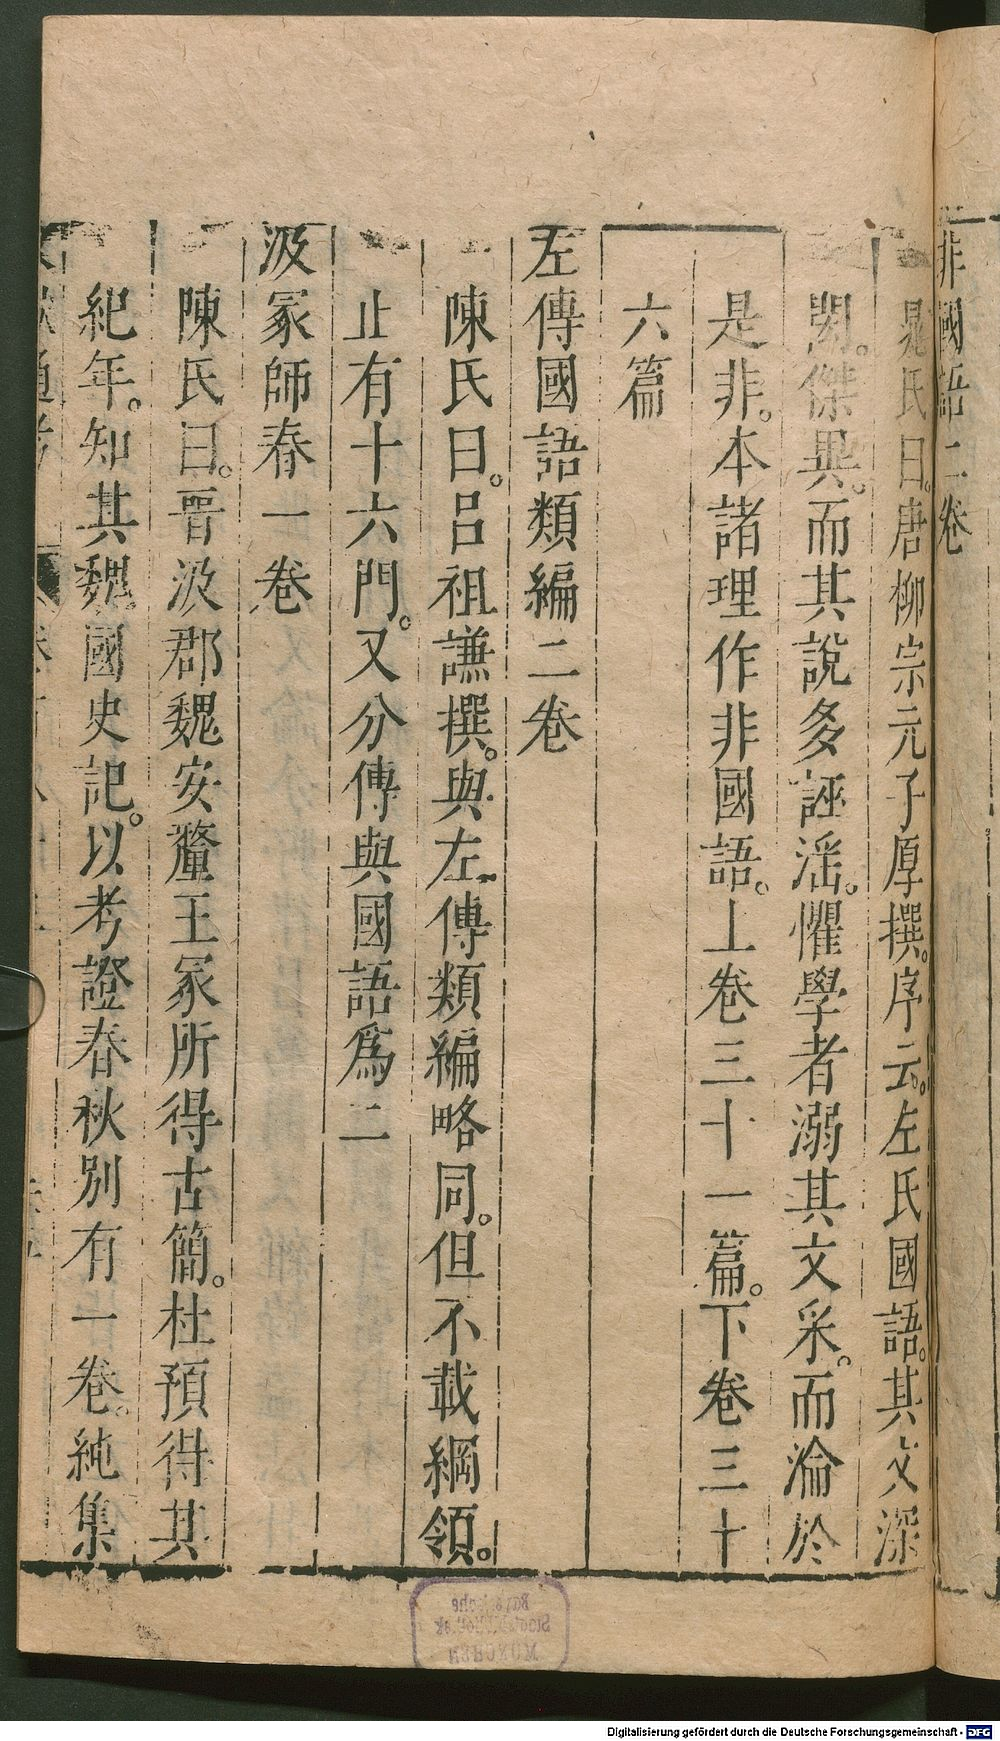 非國語二卷
晁氏曰。唐柳宗元子厚撰。序云。左氏國語。其文深
閎。傑異。而其說多誣滛。懼學者溺其文采。而淪於
是非。本諸理作非國語。上卷三十一篇。下卷三十
六篇
左傳國語類編二卷
陳氏曰。呂祖謙撰。與左傳類編略同。但不載綱領。
止有十六門。又分傳與國語爲二
汲冢師春一卷
陳氏曰。晉汲郡魏安釐王冢所得古簡。杜預得其
紀年。知其魏國史記。以考證春秋別有一卷。純集
Digitalisierung gefördert durch die Deutsche Forschungsgemeinschaft - DFG